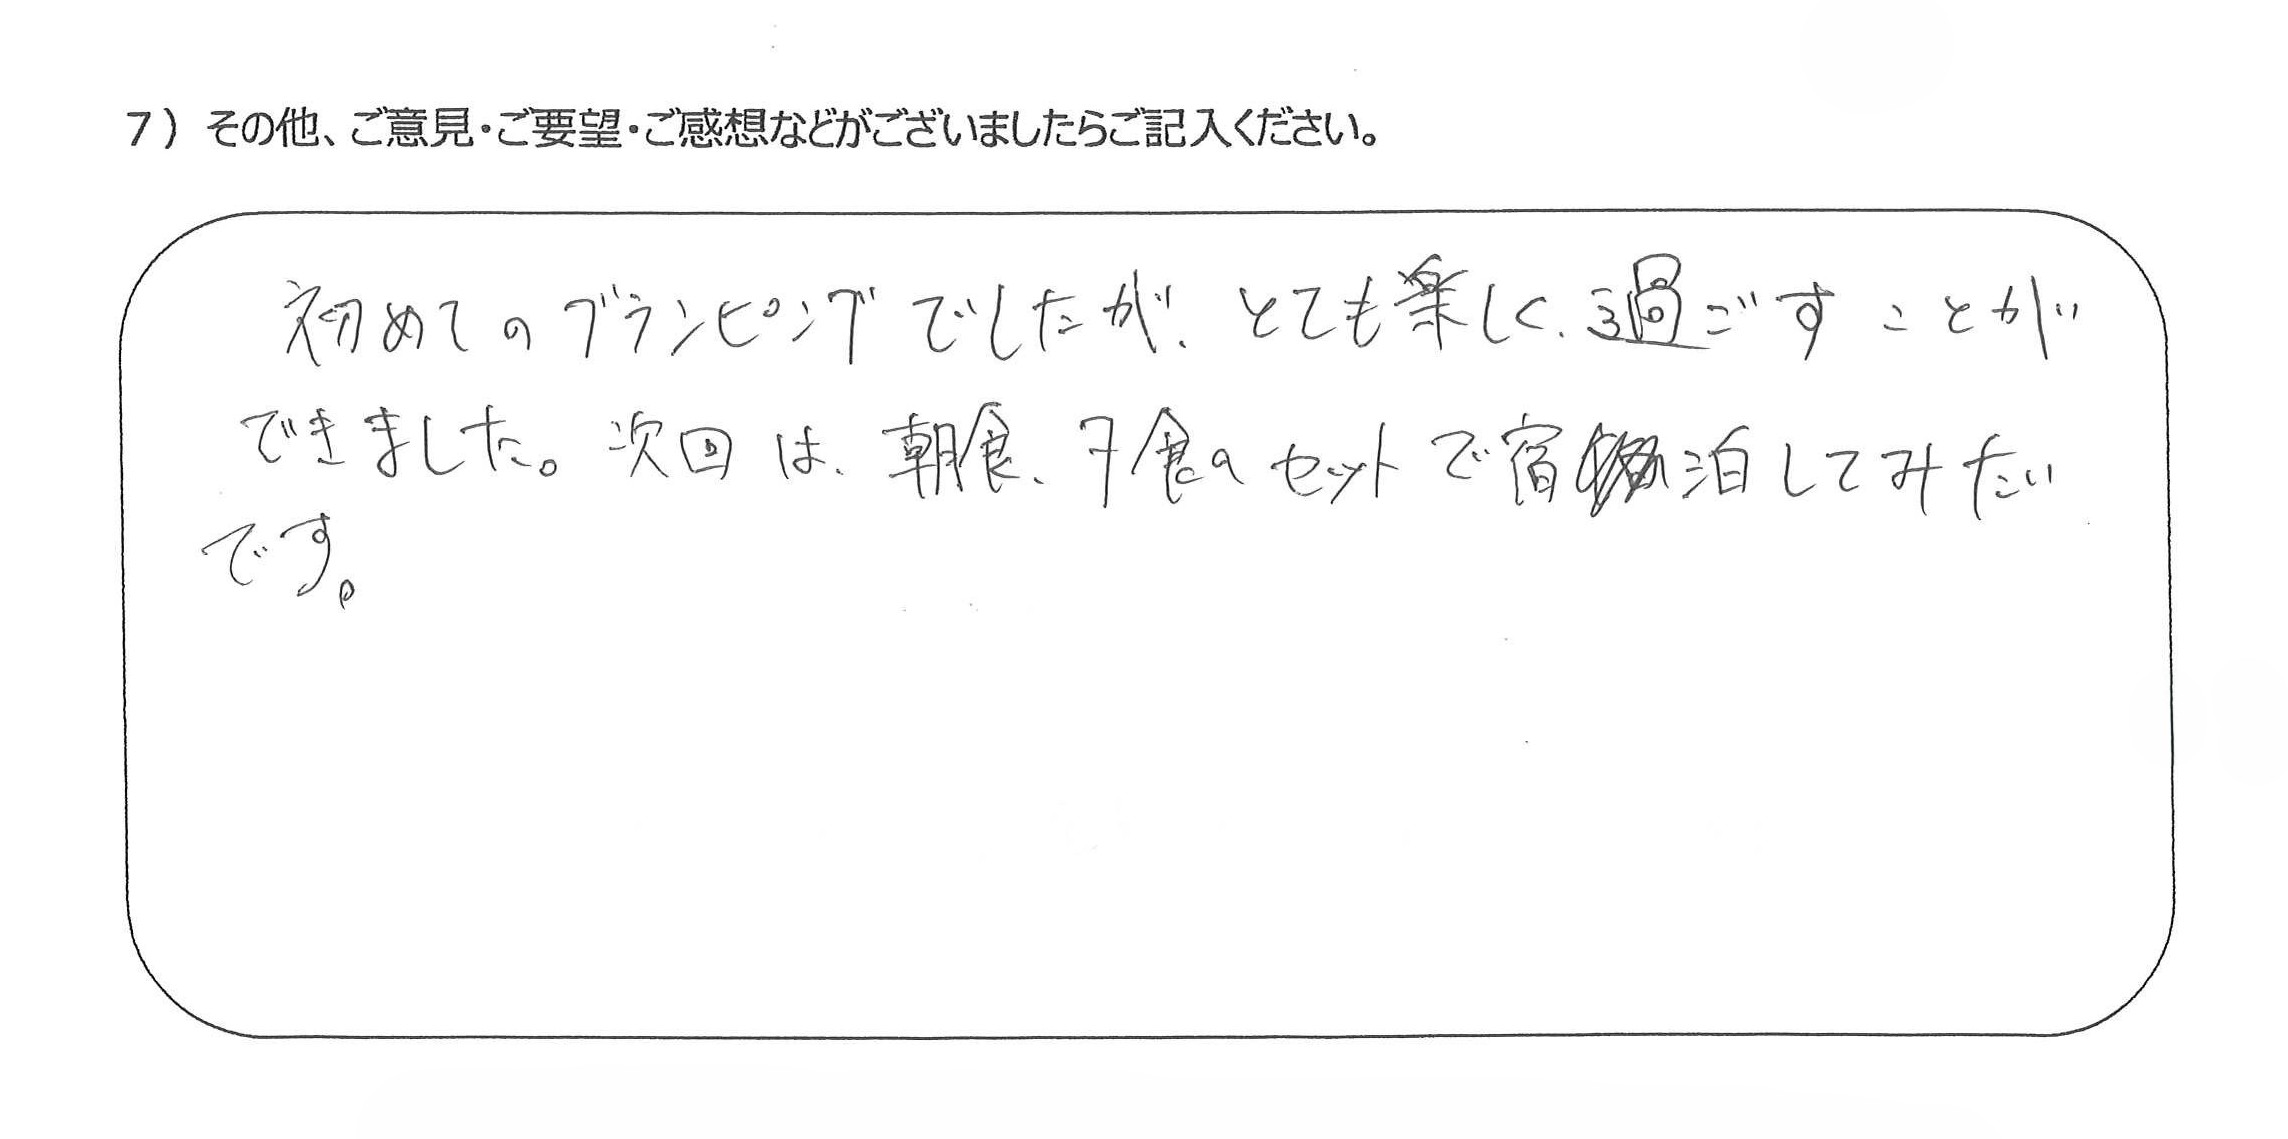 7）その他、ご意見・ご要望・ご感想などがございましたらご記入ください。
初めてのグランピングでしたが、とても楽しく、過ごすことが
できました。次回は、朝食、夕食のセットで宿泊してみたい
です。